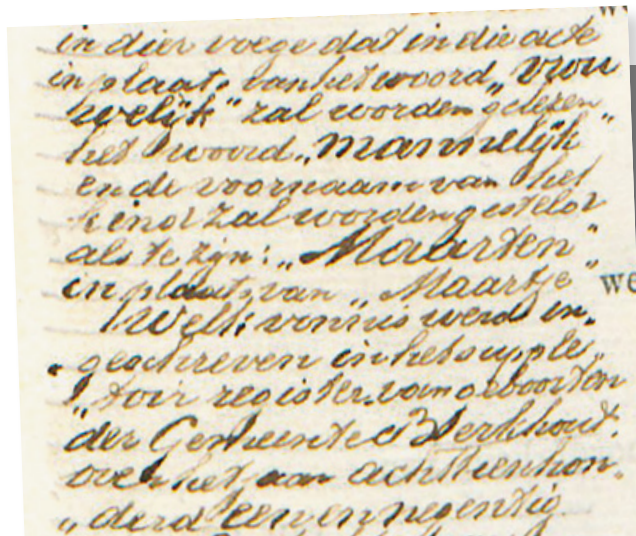 in dier voege dat in die acte
in plaats van het woord „vrou
welijk" zal worden gelezen
het woord „mannelijk"
en de voornaam van het
kind zal worden gesteld
als te zijn: „Maarten"
in plaats van „Maartje"
Welk vonnis werd in„
„geschreven in het supple„
„toir register van geboorten
der Gemeente Berkhout
over het jaar achttienhon„
„derd een en negentig
we